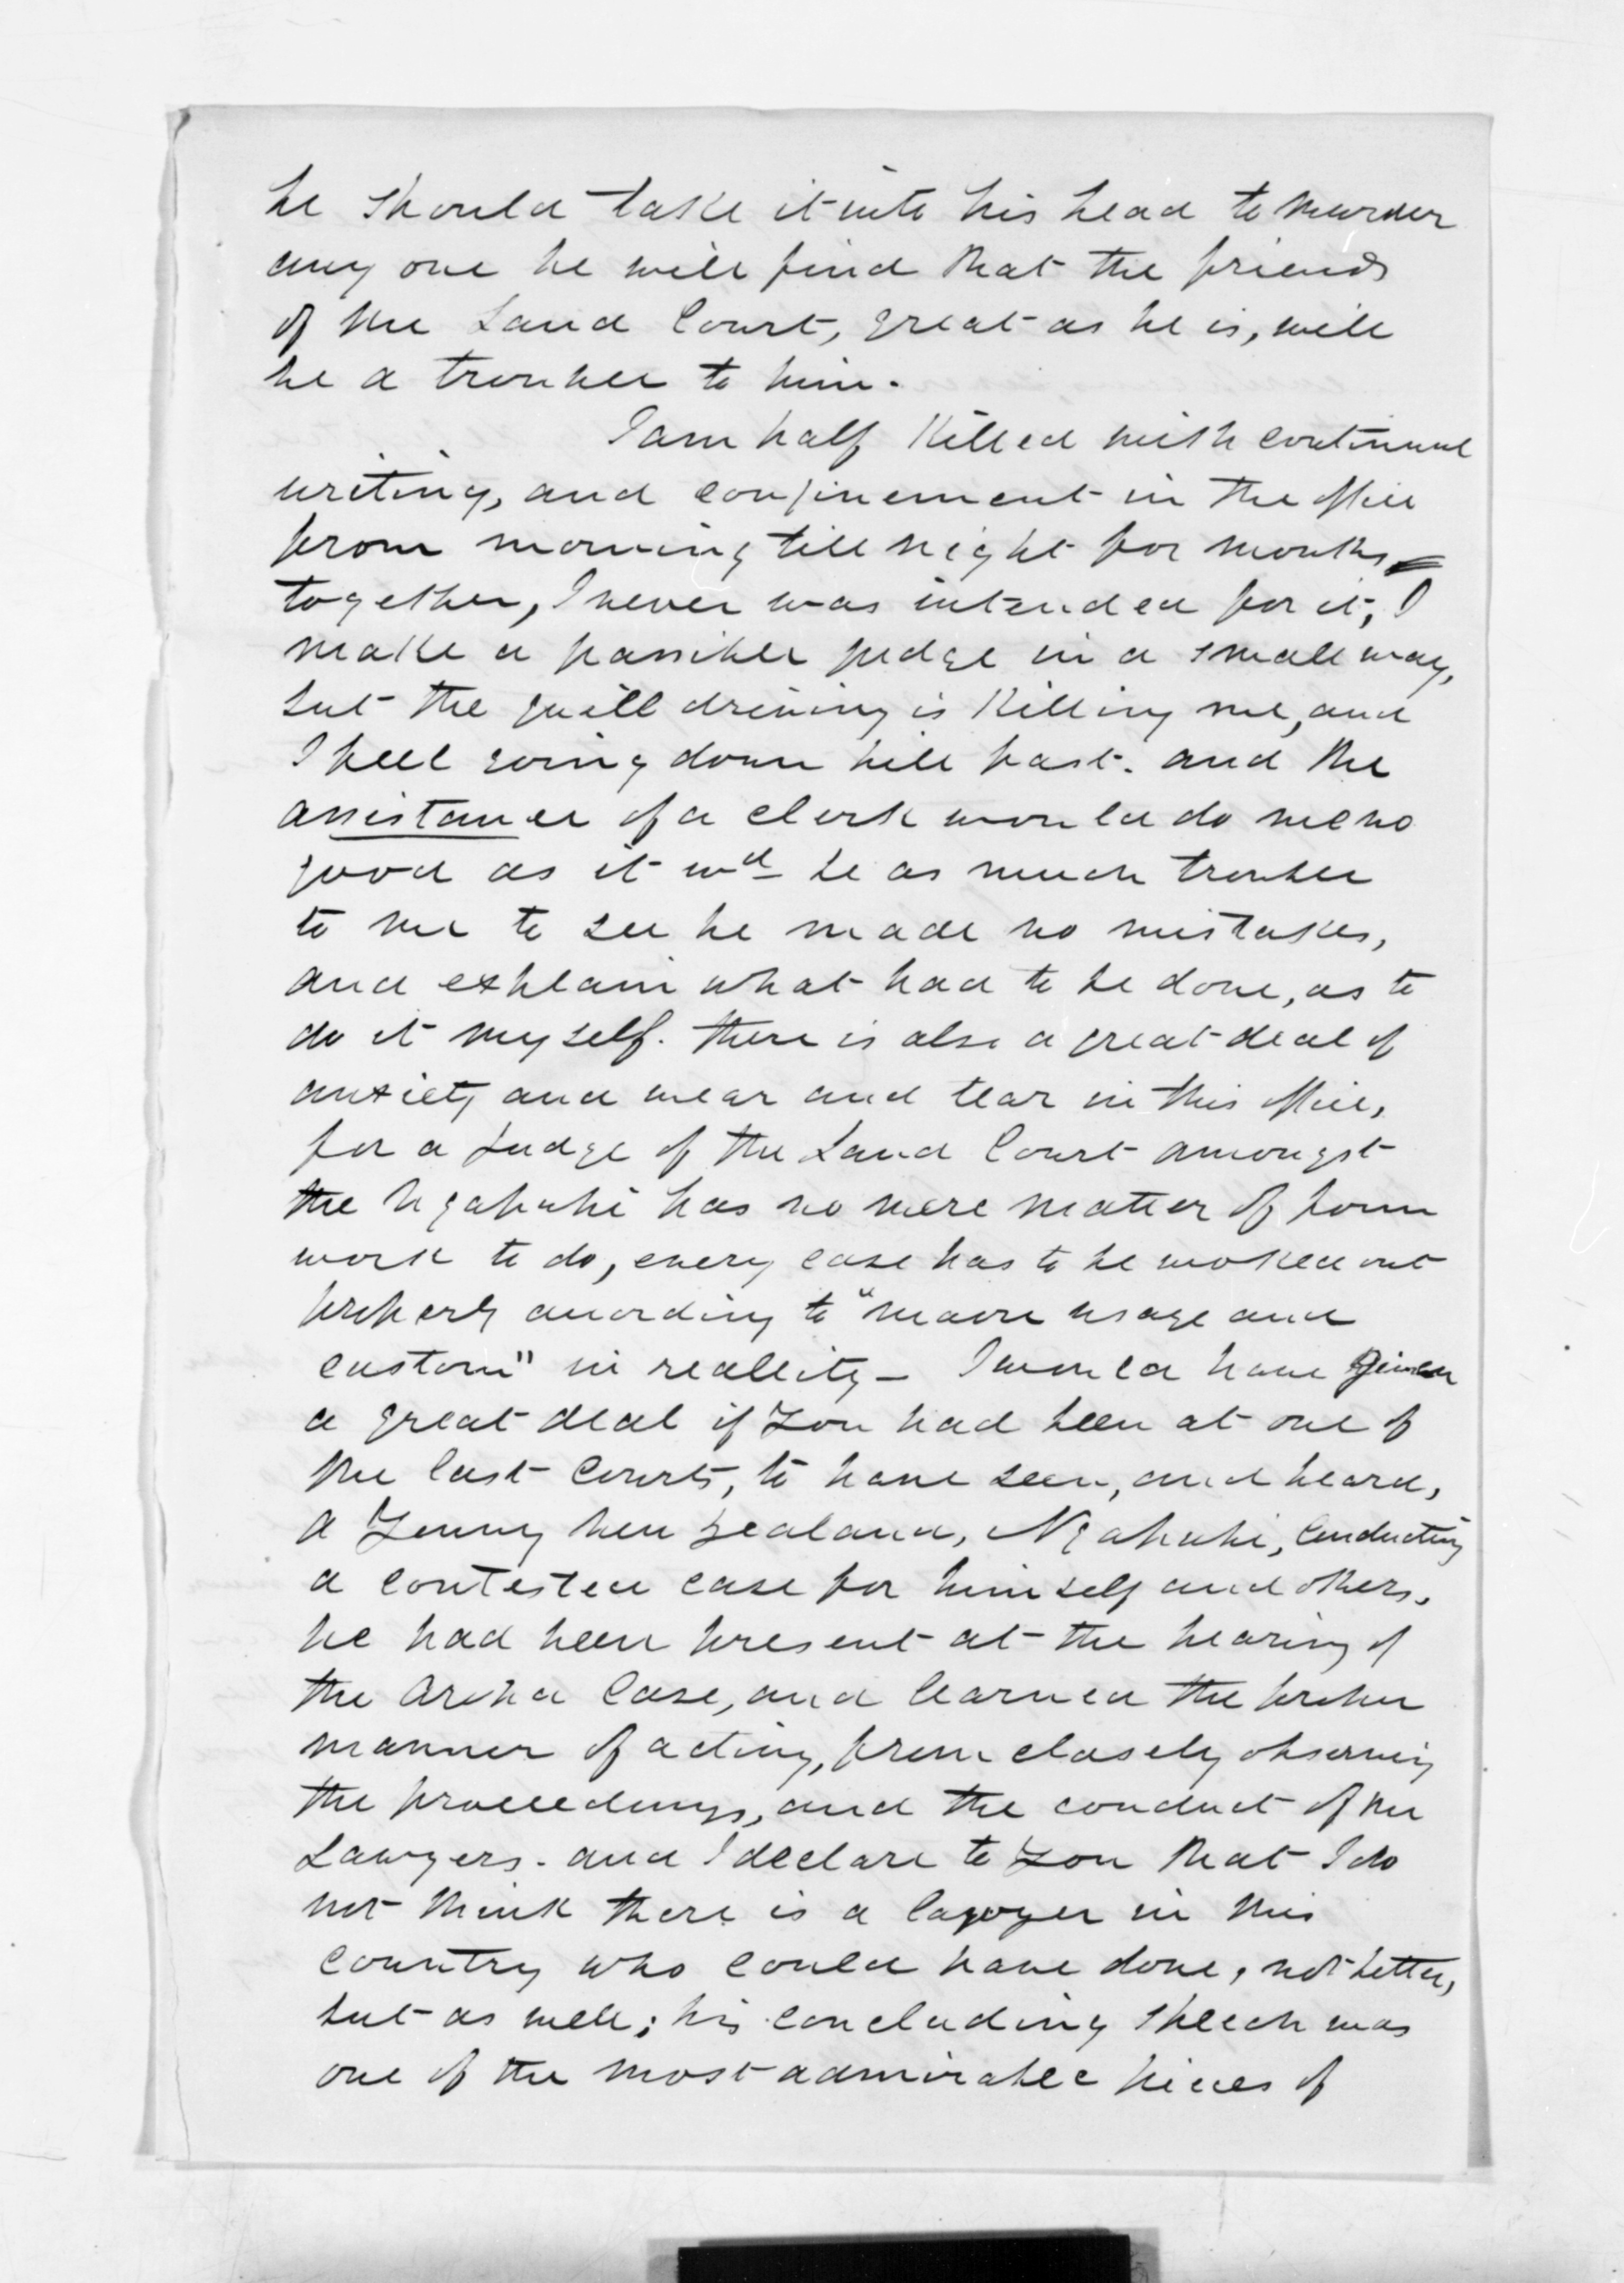 he should take it into his head to murder
any one he will find that the friends
of the Land Court, great as he is, will
be a trouble to him.
I am half killed with continual
writing, and confinement in the office
from morning till night for months
together, I never was intended for it, I
make a passible judge in a small way,
but the quill driving is killing me, and
I feel going down hill fast. and the
assistance of a clerk would do me no
good as it wd be as much trouble
to me to see he made no mistakes,
and explain what had to be done, as to
do it myself. there is also a great deal of
anxiety and wear and tear in this office,
for a Judge of the Land Court amongst
the Ngapuhi has no mere matter of form
work to do, every case has to be woked out
properly according to "maori usage and
custom" in reallity - I would have given
a great deal if you had been at one of
the last Courts, to have seen, and heard,
a young new zealand, Ngapuhi, Conducting
a contested case for himself and others,
he had been present at the hearing of
the Case, and learned the proper
manner of acting, from closely observing
the proceedings, and the conduct of the
Lawyers. and I declare to you that I do
not think there is a lawyer in this
country who could have done, not better,
but as well; his concluding speech was
one of the most admirable pieces of